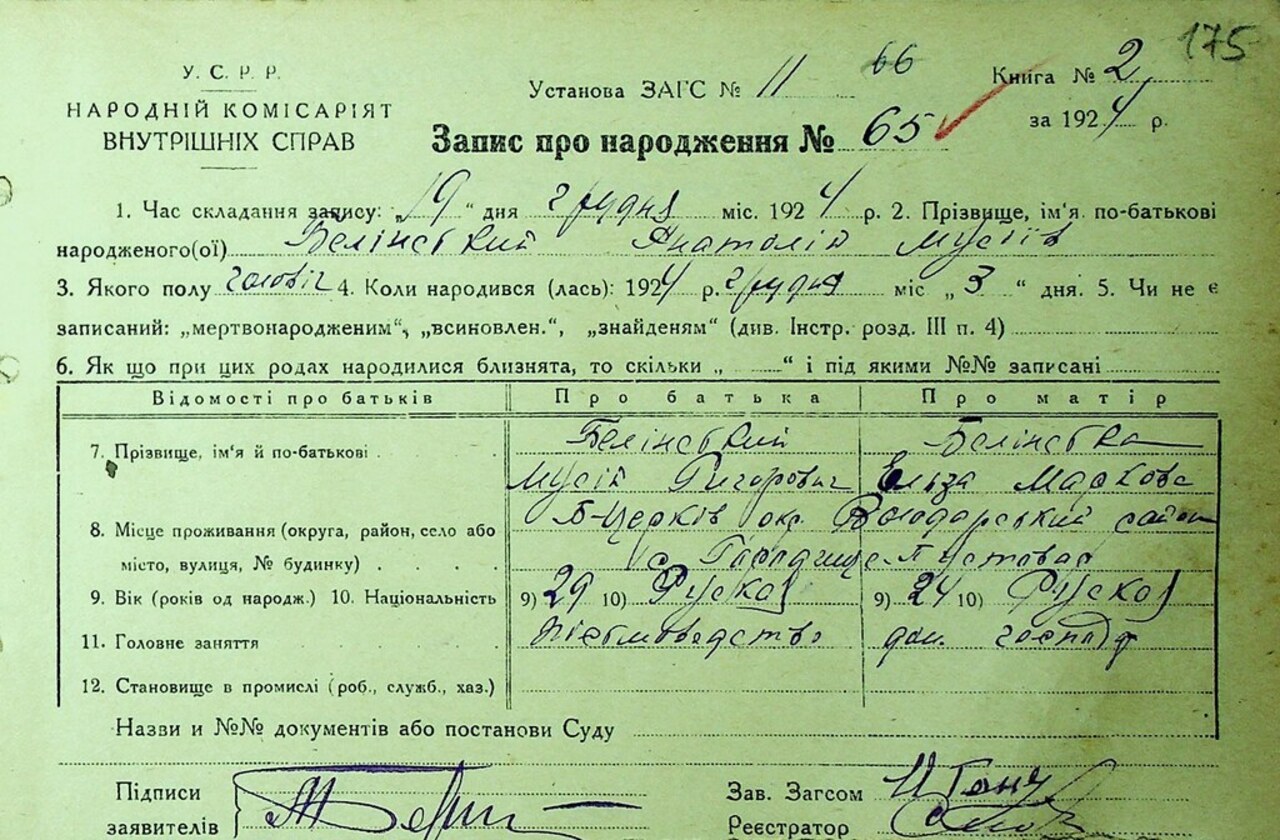 175
У. С. Р. Р.
НАРОДНІЙ КОМІСАРІЯТ
ВНУТРІШНІХ СПРАВ
Установа ЗАГС № 11 66
Книга № 2
за 1924 р.
Запис про народження № 65
1. Час складання запису: „19“ дня грудня міс. 1924 р. 2. Прізвище, ім'я по-батькові
народженого(ої) Белінський Анатолій Мусіїв
3. Якого полу чоловіч 4. Коли народився (лась): 1924 р. грудня міс „3“ дня. 5. Чи не є
записаний: „мертвонародженим“, „всиновлен.“, „знайденям“ (див. Інстр. розд. III п. 4)
6. Як що при цих родах народилися близнята, то скільки „ “ і під якими №№ записані
Відомості про батьків Про батька Про матір
7. Прізвище, ім'я й по-батькові Белінський Белінська
Мусій Григорович Ельза Маркова
8. Місце проживання (округа, район, село або Б-Церків окр. Володарський район
місто, вулиця, № будинку) с. Городище
9. Вік (років од народж.) 10. Національність 9) 29 10) Руска 9) 24 10) Руска
11. Головне заняття письмоводство дом. господ
12. Становище в промислі (роб., служб., хаз.)
Назви и №№ документів або постанови Суду
Підписи
заявителів
Зав. Загсом
Реєстратор